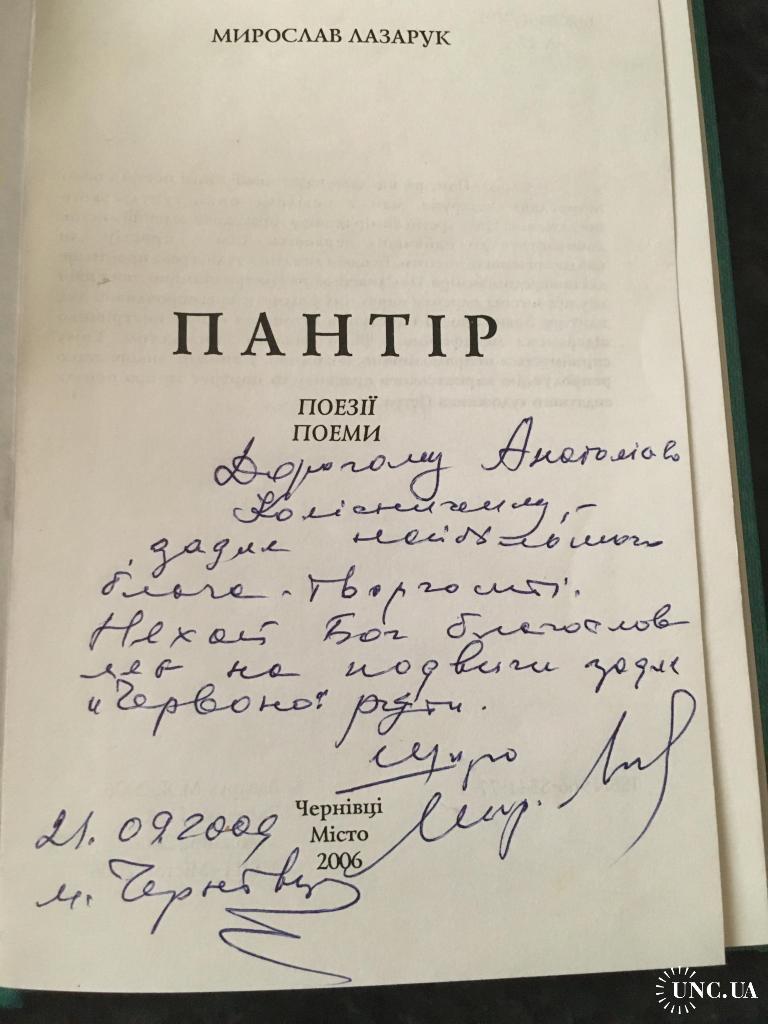 МИРОСЛАВ ЛАЗАРУК
ПАНТІР
ПОЕЗІЇ
ПОЕМИ
Дорогому Анатолію
Колісниченку,
задля найбільшого
блага - творчості.
Нехай Бог благослов
ляє на подвиги задля
"Червоної рути".
Щиро
Мир. Лаз
21. 09 2009
м. Чернівці
Чернівці
Місто
2006
UNC.UA